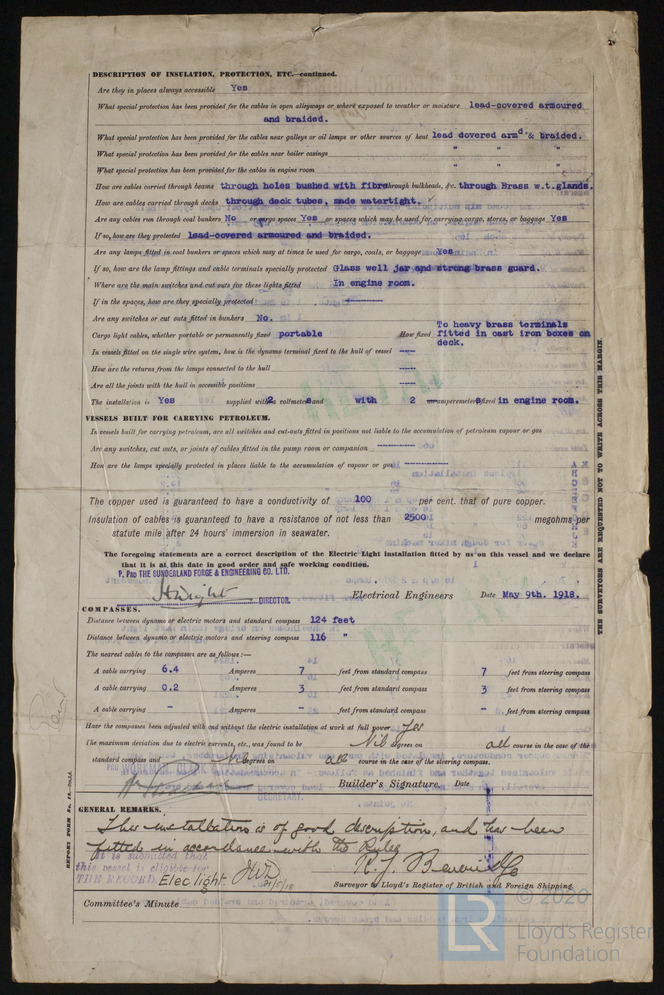 DESCRIPTION OF INSULATION, PROTECTION, ETC.—continued.
Are they in places always accessible Yes
What special protection has been provided for the cables in open alleyways or where exposed to weather or moisture lead-covered armoured
and braided.
What special protection has been provided for the cables near galleys or oil lamps or other sources of heat lead covered armd & braided.
What special protection has been provided for the cables near boiler casings " " "
What special protection has been provided for the cables in engine room " " "
How are cables carried through beams through holes bushed with fibre through bulkheads, &c. through Brass w.t.glands.
How are cables carried through decks through deck tubes, made watertight.
Are any cables run through coal bunkers No or cargo spaces Yes or spaces which may be used for carrying cargo, stores, or baggage Yes
If so, how are they protected lead-covered armoured and braided.
Are any lamps fitted in coal bunkers or spaces which may at times be used for cargo, coals, or baggage Yes
If so, how are the lamp fittings and cable terminals specially protected Glass well jar and strong brass guard.
Where are the main switches and cut outs for these lights fitted In engine room.
If in the spaces, how are they specially protected
Are any switches or cut outs fitted in bunkers No.
Cargo light cables, whether portable or permanently fixed portable How fixed To heavy brass terminals
fitted in cast iron boxes on
deck.
In vessels fitted on the single wire system, how is the dynamo terminal fixed to the hull of vessel
How are the returns from the lamps connected to the hull
Are all the joints with the hull in accessible positions
The installation is Yes supplied with 2 voltmeters and with 2 amperemeters fixed in engine room.
VESSELS BUILT FOR CARRYING PETROLEUM.
In vessels built for carrying petroleum, are all switches and cut-outs fitted in positions not liable to the accumulation of petroleum vapour or gas
Are any switches, cut outs, or joints of cables fitted in the pump room or companion
How are the lamps specially protected in places liable to the accumulation of vapour or gas
The copper used is guaranteed to have a conductivity of 100 per cent. that of pure copper.
Insulation of cables is guaranteed to have a resistance of not less than 2500 megohms per
statute mile after 24 hours' immersion in seawater.
The foregoing statements are a correct description of the Electric Light installation fitted by us on this vessel and we declare
that it is at this date in good order and safe working condition.
P. PRO THE SUNDERLAND FORGE & ENGINEERING CO. LTD.
DIRECTOR. Electrical Engineers Date May 9th. 1918.
COMPASSES.
Distance between dynamo or electric motors and standard compass 124 feet
Distance between dynamo or electric motors and steering compass 116 "
The nearest cables to the compasses are as follows:—
A cable carrying 6.4 Amperes 7 feet from standard compass 7 feet from steering compass
A cable carrying 0.2 Amperes 3 feet from standard compass 3 feet from steering compass
A cable carrying - Amperes - feet from standard compass - feet from steering compass
Have the compasses been adjusted with and without the electric installation at work at full power Yes
The maximum deviation due to electric currents, etc., was found to be Nil degrees on all course in the case of the
standard compass and Nil degrees on all course in the case of the steering compass.
PRO WORKMAN, CLARK
SECRETARY. Builder's Signature. Date
GENERAL REMARKS.
This installation is of good description, and has been
fitted in accordance with the Rules
It is submitted that
this vessel is eligible for
THE RECORD. Elec light. JWD 21/5/18
Surveyor to Lloyd's Register of British and Foreign Shipping.
Committee's Minute
THE SURVEYORS ARE REQUESTED NOT TO WRITE ACROSS THIS MARGIN.
© 2020
LR
Lloyd's Register
Foundation